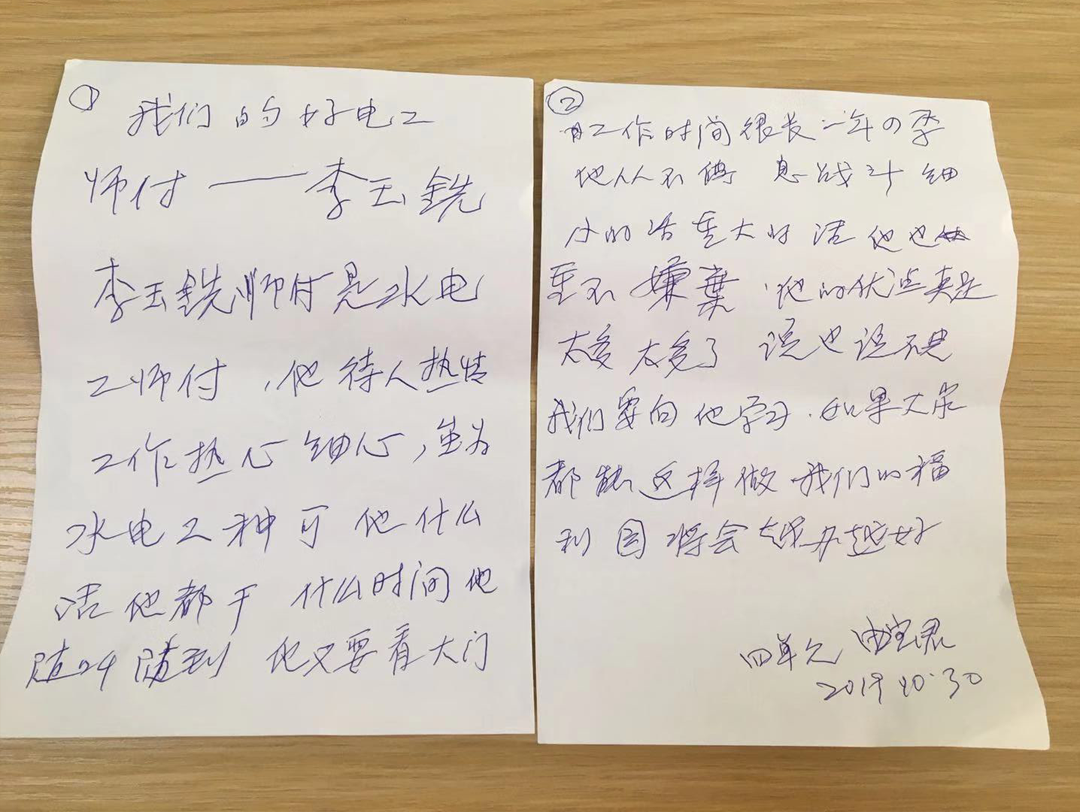 ①
我们的好电工
师付——李玉銑
李玉銑师付是水电
工师付，他待人热情
工作热心细心，虽为
水电工种可他什么
活他都干 什么时间他
随叫随到 他又要看大门
②
工作时间很长 一年四季
他从不 息战斗 细
小的活重大的活他也
至不嫌棄·他的优点真是
太多太多了 说也说不尽
我们要向他学习·如果大家
都能这样做 我们的福
利园将会越办越好
四单元 宝君
2019 10·30